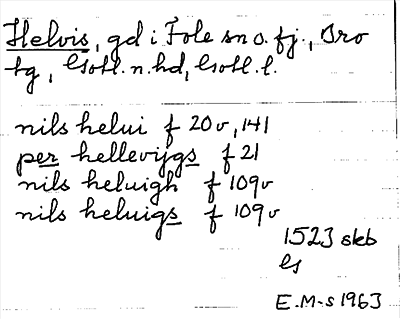 Helvis, gd i Fole sn o. fj., Bro
tg, Gotl. n. hd, Gotl. l.
nils helui f 20v, 141
per hellevijgs f 21
nils heluigh f 109v
nils heluigs f 109v
1523 skb
G
E.M-s 1963